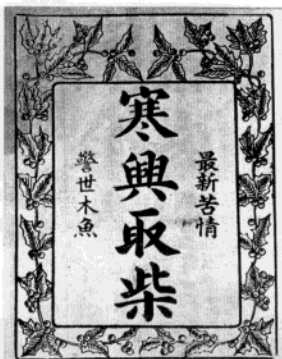 最新苦情
寒興取柴
警世木魚